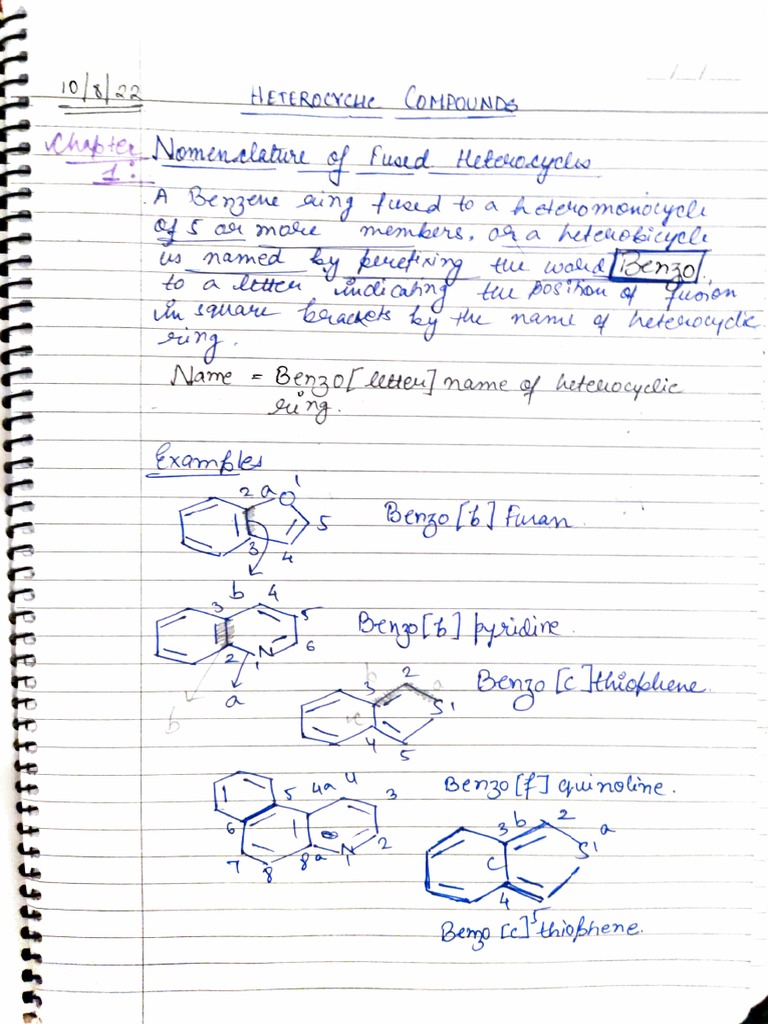 10/8/22
HETEROCYCLIC COMPOUNDS
Chapter 1: Nomenclature of Fused Heterocycles
A Benzene ring fused to a heteromonocycle
of 5 or more members, or a heterobicycle
is named by prefixing the word Benzo
to a letter indicating the position of fusion
in square brackets by the name of heterocyclic
ring.
Name = Benzo[letter] name of heterocyclic
ring.
Examples
2 a O 1
5
3 4
Benzo [b] Furan
b 4
3 5
6
2 N 1
a
b
Benzo [b] pyridine.
b 2 a
3
c S 1
4 5
Benzo [c] thiophene.
5 4a 4 3
6
7 8 8a N 1 2
Benzo [f] quinoline.
3 b 2 a
c S 1
4 5
Benzo [c] thiophene.